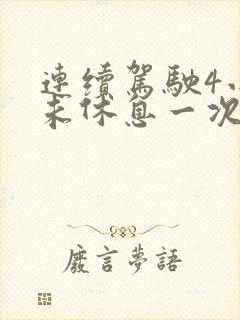 連續駕駛4小
未休息一次
廢言夢語